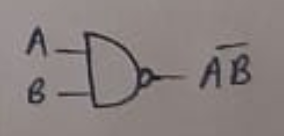 A
B
A̅B̅